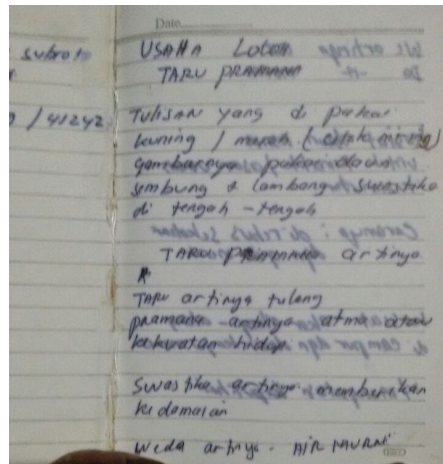 Date
subroto
USAHA Loloh
TARU PRAMANA
/ 41242
Tulisan yang di pakai
kuning / merah
gambarnya pakai daun
sembung & lambang swastika
di tengah - tengah
TARU PRAMANA artinya
TARU artinya tulang
pramana artinya atma atau
kekuatan hidup
Swastika artinya memberikan
kedamaian
Weda artinya AIR MURNI